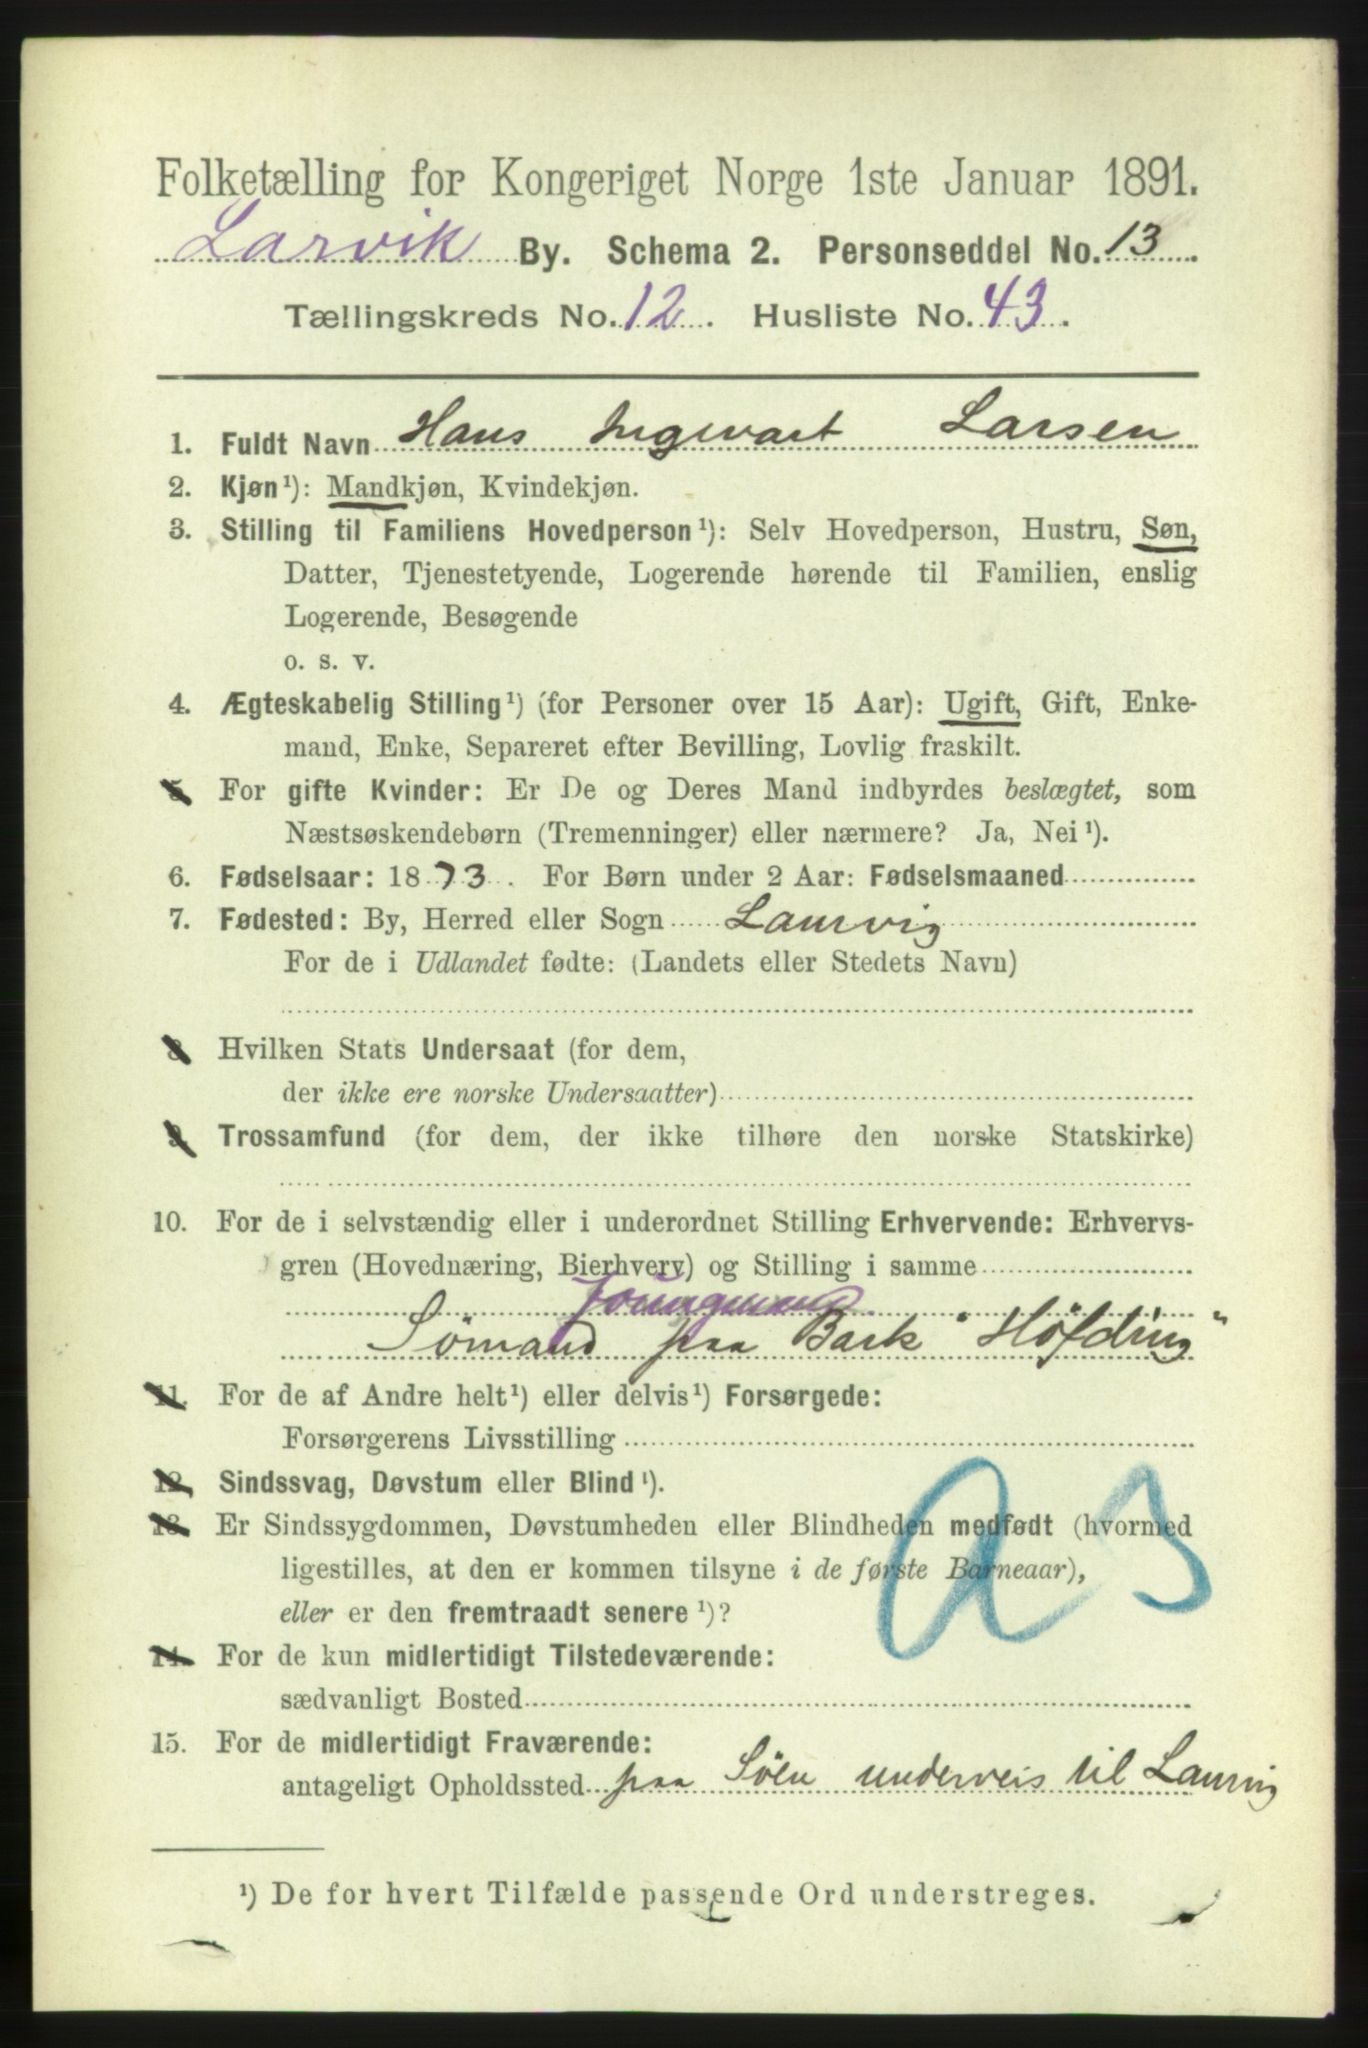 Folketælling for Kongeriget Norge 1ste Januar 1891.
Larvik By. Schema 2. Personseddel No. 13.
Tællingskreds No. 12. Husliste No. 43.
1. Fuldt Navn Hans Ingevart Larsen
2. Kjøn¹): Mandkjøn, Kvindekjøn.
3. Stilling til Familiens Hovedperson¹): Selv Hovedperson, Hustru, Søn,
Datter, Tjenestetyende, Logerende hørende til Familien, enslig
Logerende, Besøgende
o. s. v.
4. Ægteskabelig Stilling¹) (for Personer over 15 Aar): Ugift, Gift, Enke-
mand, Enke, Separeret efter Bevilling, Lovlig fraskilt.
5. For gifte Kvinder: Er De og Deres Mand indbyrdes beslægtet, som
Næstsøskendebørn (Tremenninger) eller nærmere? Ja, Nei¹).
6. Fødselsaar: 1873. For Børn under 2 Aar: Fødselsmaaned
7. Fødested: By, Herred eller Sogn Laurvig
For de i Udlandet fødte: (Landets eller Stedets Navn)
8. Hvilken Stats Undersaat (for dem,
der ikke ere norske Undersaatter)
9. Trossamfund (for dem, der ikke tilhøre den norske Statskirke)
10. For de i selvstændig eller i underordnet Stilling Erhvervende: Erhvervs-
gren (Hovednæring, Bierhverv) og Stilling i samme
Joungmand
Sömand paa Bark "Höfding"
11. For de af Andre helt¹) eller delvis¹) Forsørgede:
Forsørgerens Livsstilling
12. Sindssvag, Døvstum eller Blind¹).
13. Er Sindssygdommen, Døvstumheden eller Blindheden medfødt (hvormed
ligestilles, at den er kommen tilsyne i de første Barneaar),
eller er den fremtraadt senere¹)?
14. For de kun midlertidigt Tilstedeværende:
sædvanligt Bosted
15. For de midlertidigt Fraværende:
antageligt Opholdssted paa Söen underveis til Laurvig
¹) De for hvert Tilfælde passende Ord understreges.